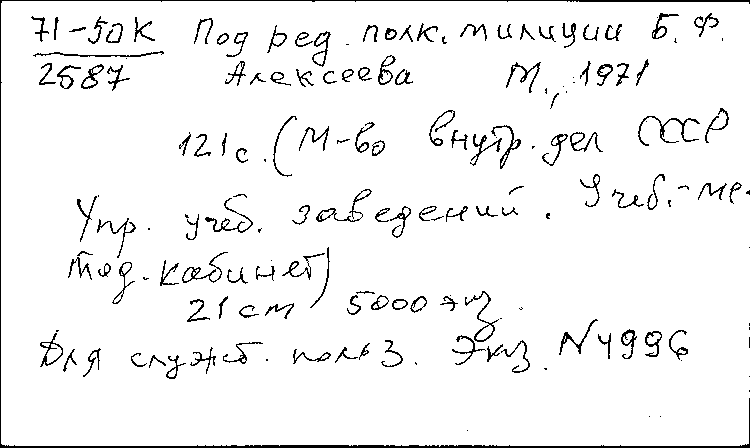 71-50К Под ред. полк. милиции Б. Ф.
2587 Алексеева М., 1971
121с. (М-во внутр. дел СССР
Упр. учеб. заведений. Учеб.-ме-
тод. кабинет)
21 cm 5000 экз.
Для служеб. польз. Экз. N4996